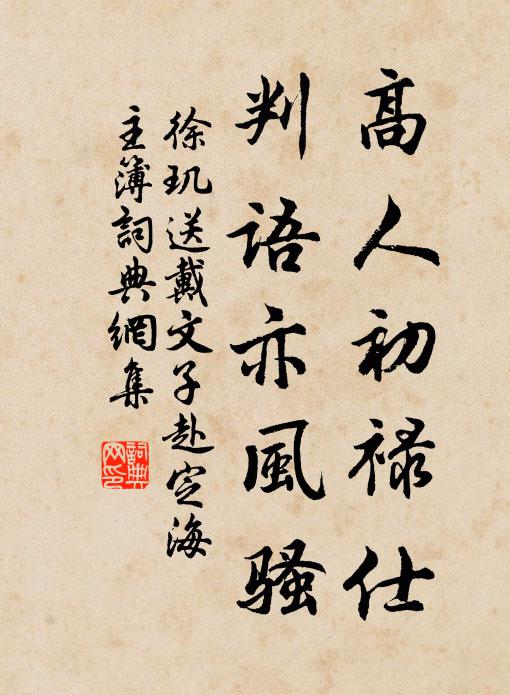 高人初祿仕
判語亦風騷
徐璣送戴文子赴定海
主簿詞典網集
詞典网印